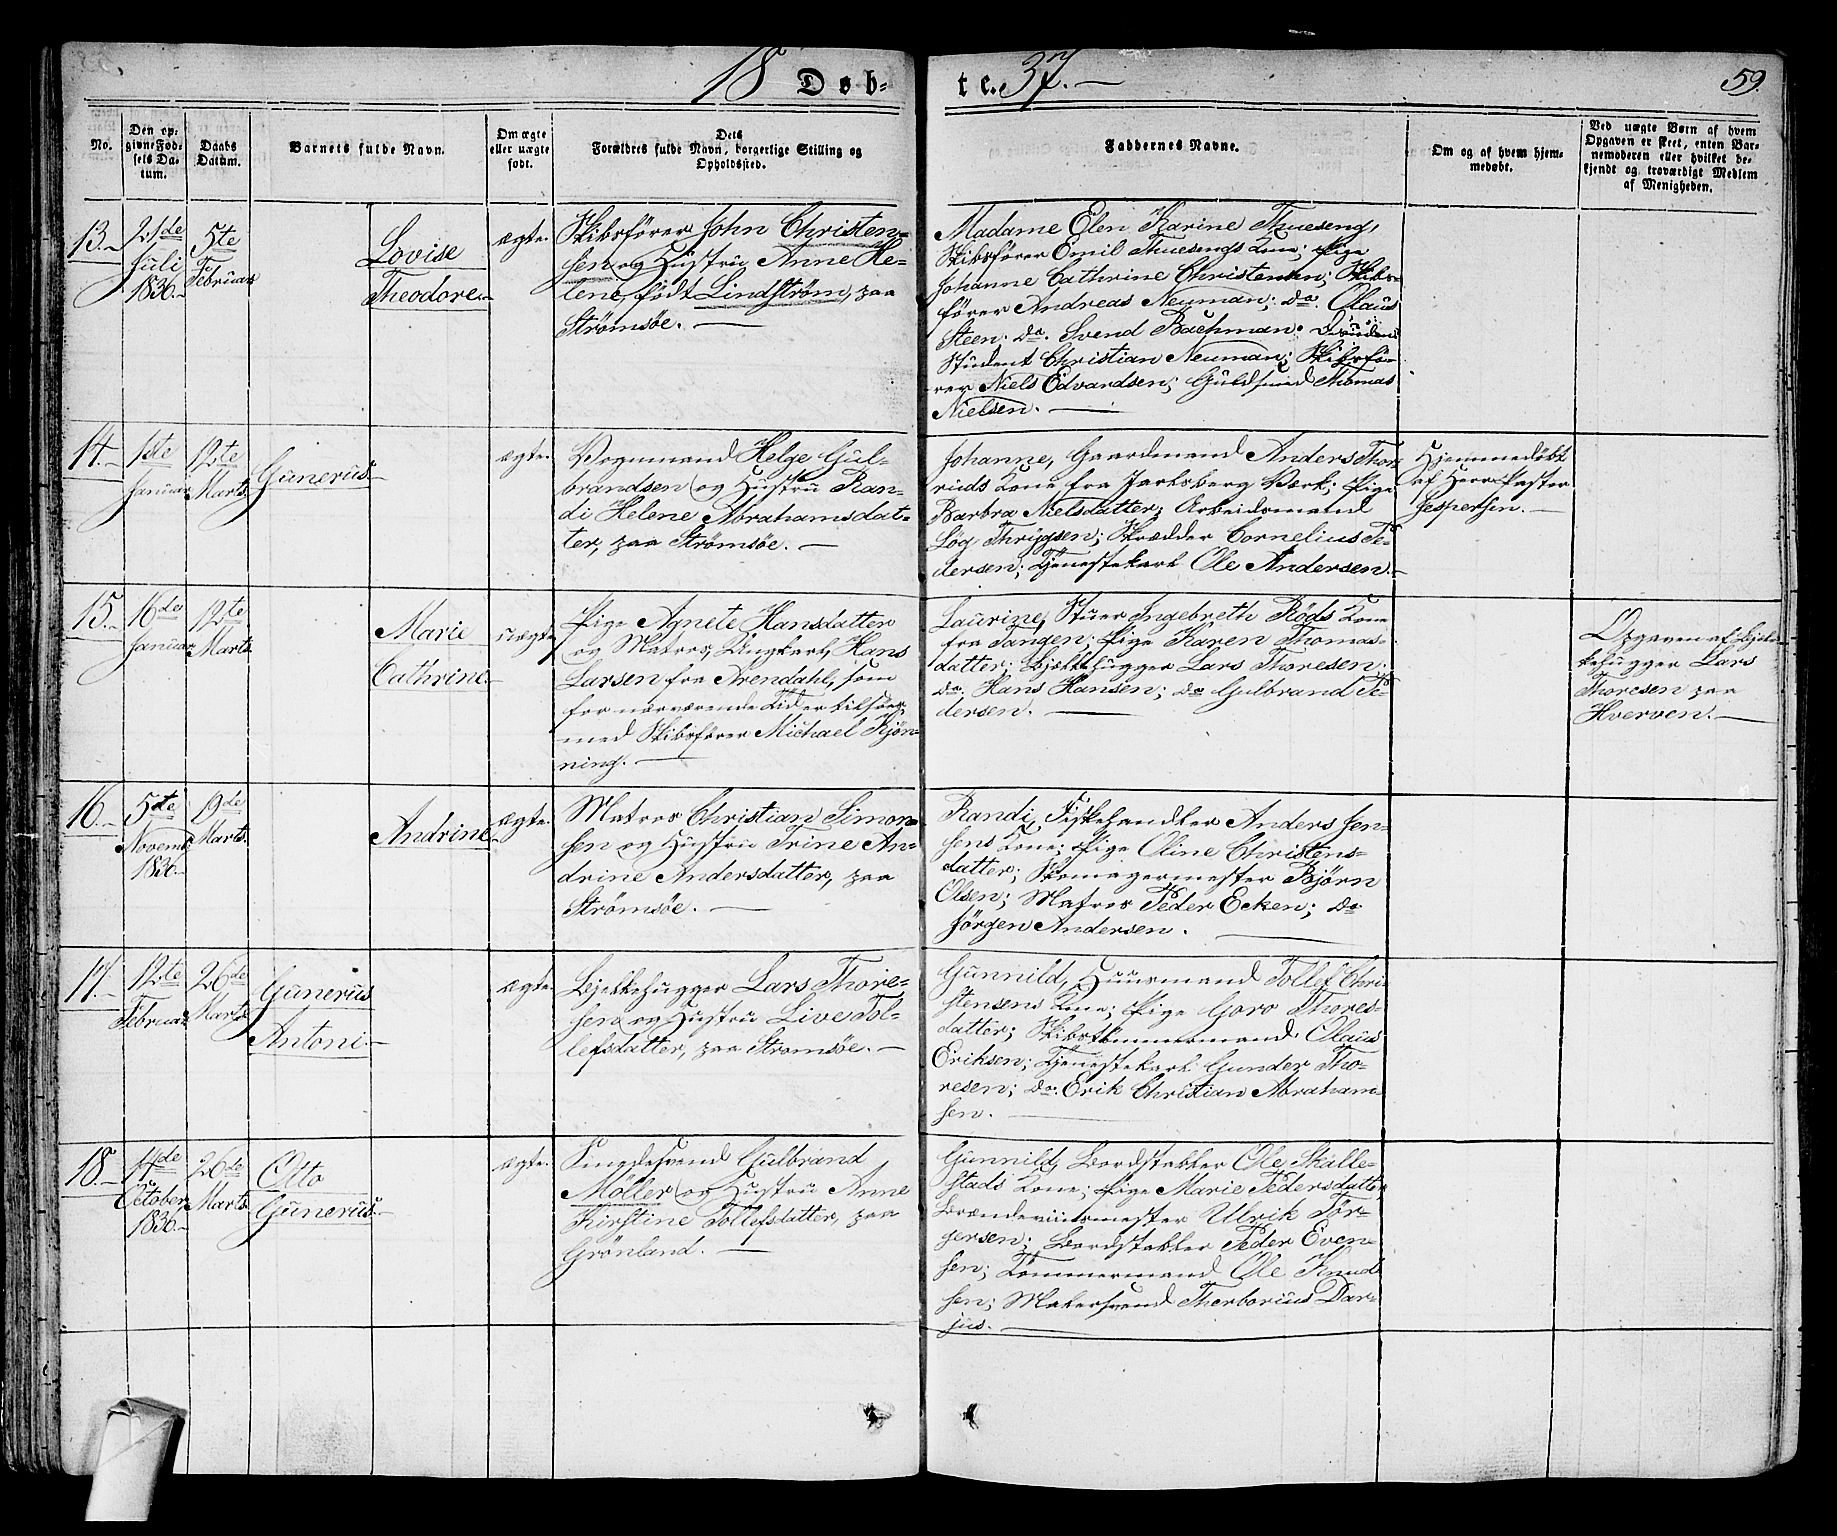 18 Døb- te. 37.
59.
No.
Den op-
givne Fød-
sels Da-
tum.
Daabs
Datum.
Barnets fulde Navn.
Om ægte
eller uægte
født.
Dets
Forældres fulde Navn, borgerlige Stilling og
Opholdssted.
Faddernes Navne.
Om og af hvem hjem-
medøbt.
Ved uægte Børn af hvem
Opgaven er skeet, enten Bar-
nemoderen eller hvilket be-
kjendt og troværdigt Medlem
af Menigheden.
13.
21de
Juli
1836.
5te
Februar
Lovise
Theodore.
ægte.
Skibsfører John Christen-
sen og Hustru Anne He-
lene, født Lindstrøm, paa
Strømsøe.
Madame Elen Karine Thueseng,
Skibsfører Emil Thuesengs Kone; Pige
Johanne Cathrine Christensen; Skibs-
fører Andreas Neuman; do. Olaus
Steen. do. Svend Bachman.
Student Christian Neuman; Skibsfø-
rer Niels Edvardsen; Guldsmed Thomas
Nielsen.
14.
1ste
Januar
12te
Marts
Gunerus.
ægte.
Vognmand Helge Gul-
brandsen og Hustru Ran-
di Helene Abrahamsdat-
ter, paa Strømsøe.
Johanne, Gaardmand Anders Thor-
ruds Kone fra Jarlsberg Værk; Pige
Barbra Nielsdatter; Arbeidsmand
Løg Thrigsen; Skrædder Cornelius Pe-
dersen; Tjenestekarl Ole Andersen.
Hjemmedøbt
af Herr Pastor
Jespersen.
15.
16de
Januar
12te
Marts
Marie
Cathrine.
uægte
Pige Agnete Hansdatter
og Matros, Ungkarl, Hans
Larsen fra Arendahl, som
for nærværende Tid er tilsøes,
med Skibsfører Michael Kjøn-
ning.
Laurine, Stuer Ingebreth Røds Kone
fra Tangen; Pige Karen Thomas-
datter; Bjelkehugger Lars Thoresen.
do. Hans Hansen; do Gulbrand Pe-
dersen.
Opgaven af Bjel-
kehugger Lars
Thoresen paa
Hverven.
16.
5te
Novemb.
1836.
19de
Marts.
Andrine.
ægte.
Matros Christian Simon-
sen og Hustru Trine An-
drine Andersdatter, paa
Strømsøe.
Randi, Fiskehandler Anders Jen-
sens Kone; Pige Oline Christens-
datter; Skomagermester Bjørn
Olsen; Matros Peder Ecken; do
Jørgen Andersen.
17.
12te
Februar
26de
Marts
Gunerius
Antoni.
ægte.
Bjelkehugger Lars Thore-
sen og Hustru Live Tol-
lefsdatter, paa Strømsøe.
Gunnild, Huusmand Tollef Chri-
stensens Kone; Pige Goro Thores-
datter; Skibstømmermand Olaus
Eriksen; Tjenestekarl Gunder Tho-
resen; do. Erik Christian Abraham-
sen.
18.
14de
October,
1836.
26de
Marts
Otto
Gunerius.
ægte.
Gulbrand
Møller og Hustru Anne
Kirstine Tollefsdatter, paa
Grønland.
Gunnild, Bordstabler Ole Skalle-
stads Kone; Pige Marie Pedersdatter
Brændeviinsmester Ulrik Jør-
gersen; Bordstabler Peder Even-
sen; Tømmermand Ole Knud
sen; Malersvend Thorborius Dar-
jus.